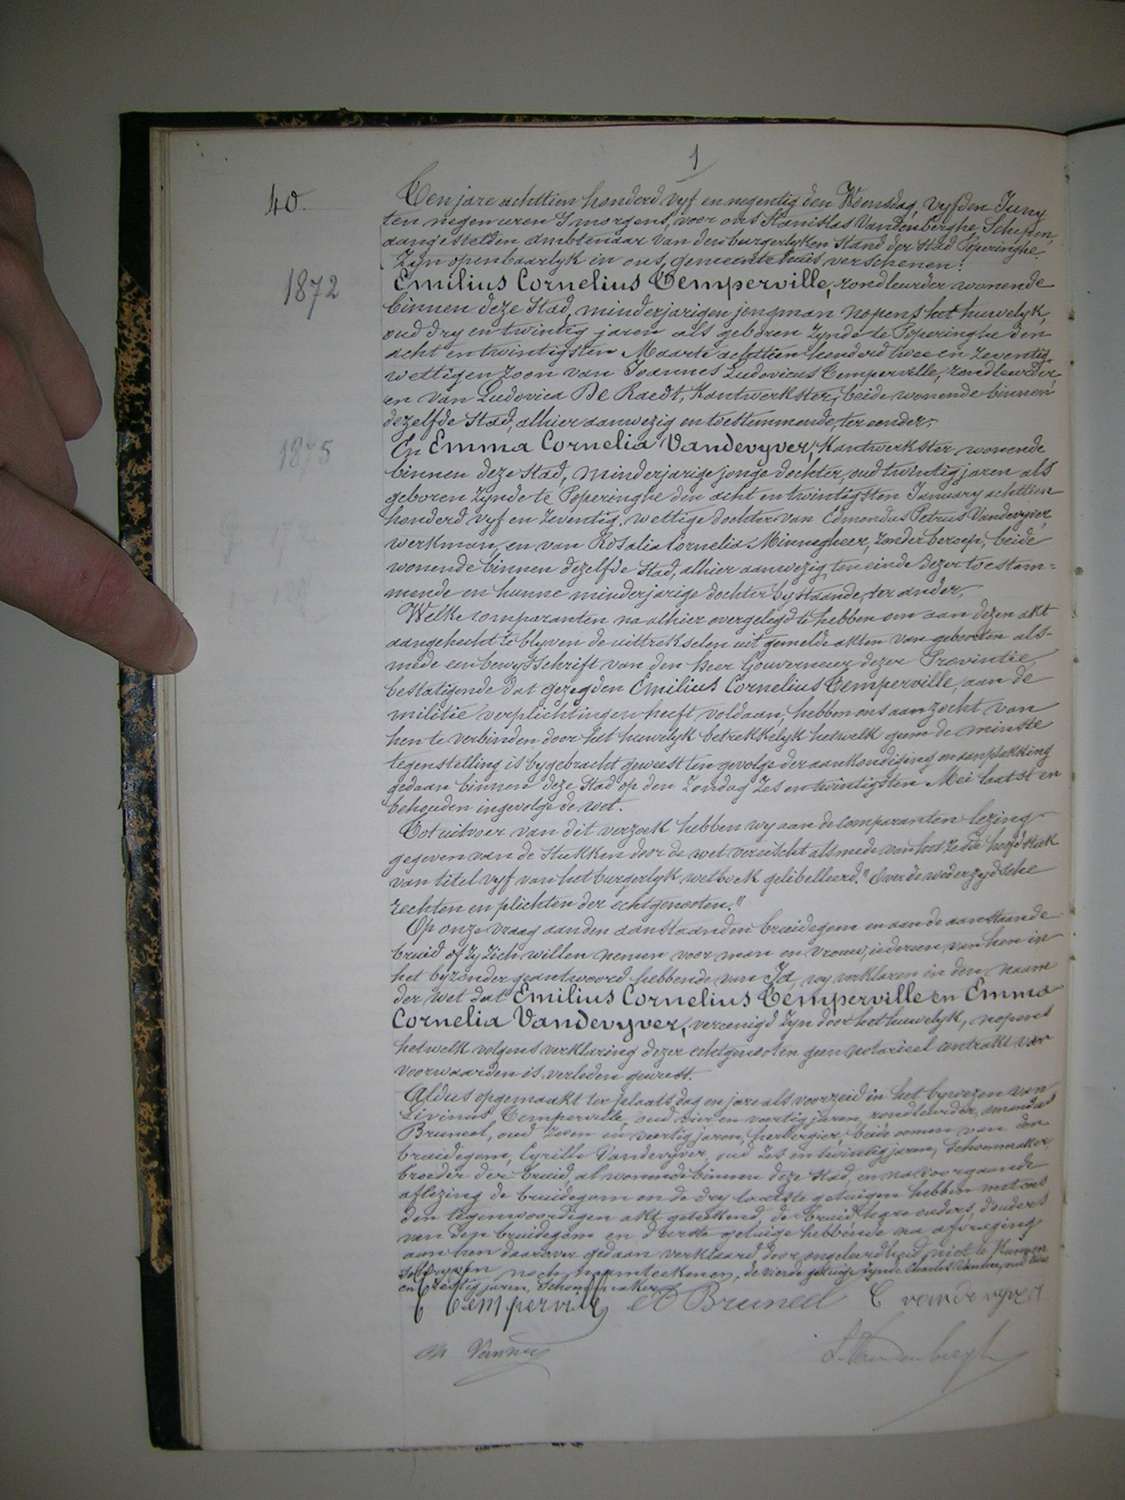 1
40.
Ten jare achttien honderd vyf en negentig den Woensdag, vyfden Juny
ten negen uren 's morgens, voor ons Stanislas Vandenberghe, Schepen,
aangestelden ambtenaar van den burgerlyken stand der stad Poperinghe
Zyn openbaarlyk in ons gemeentehuis verschenen:
1872
Emilius Cornelius Temperville, rondleurder wonende
binnen deze Stad, minderjarigen jongman nopens het huwelyk,
oud dry en twintig jaren als geboren zynde te Poperinghe den
acht en twintigsten Maarte achttien honderd twee en zeventig,
wettigen zoon van Joannes Ludovicus Temperville, rondleurder,
en van Ludovica De Raedt, Kantwerkster, beide wonende binnen
dezelfde Stad, alhier aanwezig en toestemmende, ter eender,
1875
En Emma Cornelia Vandevyver, Kantwerkster wonende
binnen deze stad, minderjarige jonge dochter, oud twintig jaren als
geboren zynde te Poperinghe den acht en twintigsten January achttien
honderd vyf en zeventig, wettige dochter van Edmondus Petrus Vandevyver,
werkman, en van Rosalia Cornelia Minnegheer, zonder beroep, beide
wonende binnen dezelfde Stad, alhier aanwezig ten einde dezer toestem=
mende en hunne minderjarige dochter bystaande, ter ander,
Welke comparanten na alhier overgelegd te hebben om aan dezen akt
aangehecht te blyven de uittrekselen uit gemelde akten van geboorten als=
mede een bewysschrift van den heer Gouverneur dezer Provintie,
bestatigende dat gezegden Emilius Cornelius Temperville, aan de
militie verplichtingen heeft voldaan, hebben ons aanzocht van
hen te verbinden door het huwelyk betrekkelyk hetwelk geene de minste
tegenstelling is bygebracht geweest ten gevolge der aankondiging en aanplakking
gedaan binnen deze Stad op den Zondag zes en twintigsten Mei laatst en
behouden ingevolge de wet.
Tot uitvoer van dit verzoek hebben wy aan de comparanten lezing
gegeven van de stukken door de wet vereischt alsmede van het zesde hoofdstuk
van titel vyf van het burgerlyk wetboek gelibelleerd "Over de wederzydsche
rechten en plichten der echtgenooten."
Op onze vraag aan den aanstaanden bruidegom en aan de aanstaande
bruid of zy zich willen nemen voor man en vrouw, iedereen van hen in
het byzonder geantwoord hebbende van Ja, wy verklaren in den naam
der wet dat Emilius Cornelius Temperville en Emma
Cornelia Vandevyver, vereenigd zyn door het huwelyk, nopens
hetwelk volgens verklaring dezer echtgenooten geen notarieel contrakt van
voorwaarden is verleden geweest.
Aldus opgemaakt ter plaats, dag en jare als voorzeid in het bywezen van
Livinus Temperville, oud vier en veertig jaren, rondleurder,
Bruneel, oud zeven en veertig jaren, herbergier, beide oomen van den
bruidegom, Cyrille Vandevyver, oud zes en twintig jaren, Schoenmaker,
broeder der bruid, al wonende binnen deze Stad, en na voorgaande
aflezing de bruidegom en de dry laatste getuigen hebben met ons
den tegenwoordigen akt geteekend, de bruid, hare ouders, d'ouders
van den bruidegom en d'eerste getuige hebbende na afvraging
aan hen daarover gedaan verklaard, door ongeleerdheid niet te kunnen
schryven noch naamteekenen, de vierde getuige zynde Charles
en jaren, Schoenmaker
E Temperville Bruneel C vandevyver
Ch Vannes S. Vandenberghe